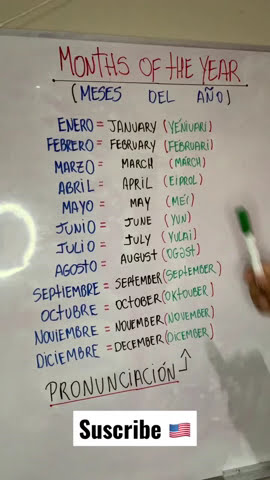 MONTHS OF THE YEAR
(MESES DEL AÑO)
ENERO = JANUARY (YÉNIUARI)
FEBRERO = FEBRUARY (FEBRUARI)
MARZO = MARCH (MÁRCH)
ABRIL = APRIL (EIPROL)
MAYO = MAY (MÉI)
JUNIO = JUNE (YUN)
JULIO = JULY (YULAI)
AGOSTO = AUGUST (OGƏST)
SEPTIEMBRE = SEPTEMBER (SEPTEMBER)
OCTUBRE = OCTOBER (OKTOUBER)
NOVIEMBRE = NOVEMBER (NOVEMBER)
DICIEMBRE = DECEMBER (DICEMBER)
PRONUNCIACIÓN
Suscribe 🇺🇸